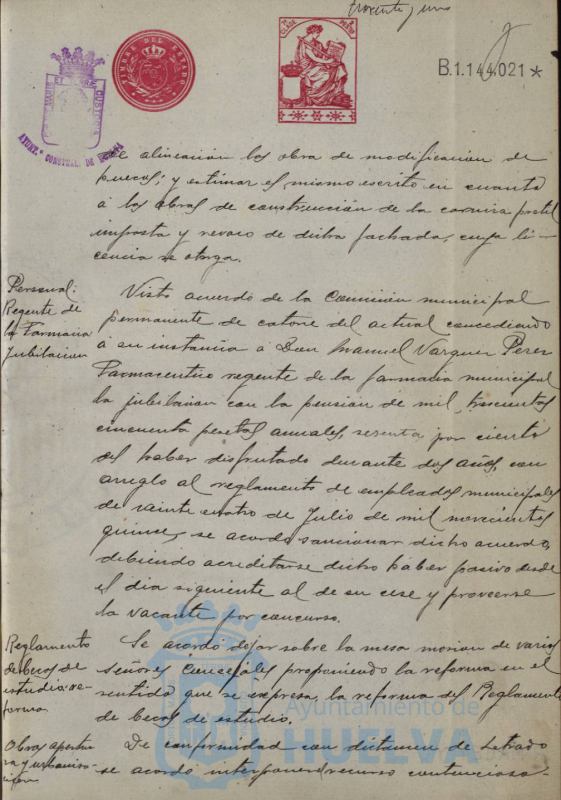 treinta y uno
TIMBRE DEL ESTADO
8ª CLASE 1 PESETA
B.1.144.021*
AYUNTº CONSTNAL. DE HUELVA
de alineación las obras de modificacion de
huecos; y estimar el mismo escrito en cuanto
á las obras de construcción de la cornisa
imposta y revoco de dicha fachada, cuya li-
cencia se otorga.
Personal:
Regente de
la Farmacia
Jubilacion
Visto acuerdo de la Comisión municipal
permanente de catorce del actual concediendo
á su instancia á Don Manuel Vazquez Perez
Farmaceutico regente de la farmacia municipal
la jubilacion con la pensión de mil, trescientas
cincuenta pesetas anuales, sesenta por ciento
del haber disfrutado durante dos años, con
arreglo al reglamento de empleados municipales
de veinte cuatro de Julio de mil novecientos
quince, se acordo sancionar dicho acuerdo,
debiendo acreditarse dicho haber pasivo desde
el dia siguiente al de su cese y proveerse
la vacante por concurso.
Reglamento
de becas de
estudio: re-
forma.
Se acordó dejar sobre la mesa mocion de varios
señores Concejales proponiendo la reforma en el
sentido que se expresa, la reforma del Reglamento
de becas de estudio.
Obras apertu
ra y urbaniza-
cion
De conformidad con dictamen de Letrado
se acordo interponer recurso contencioso-
Ayuntamiento de
HUELVA